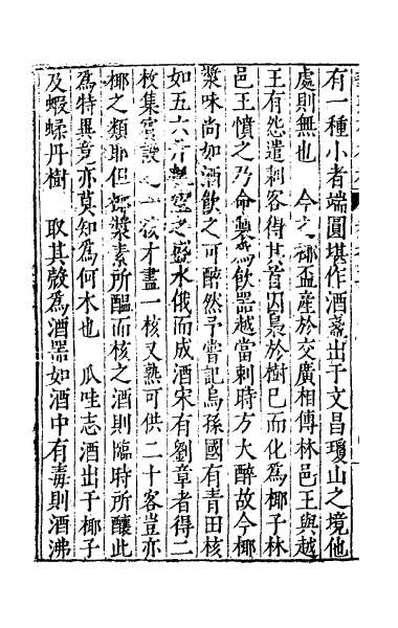 有一種小者端圓堪作酒盞出于文昌瓊山之境他
處則無也　今之椰盃産於交廣相傳林邑王與越
王有怨遣刺客得其首囚梟於樹巳而化爲椰子林
邑王憤之乃命製爲飮器越當刺時方大醉故今椰
漿味尚如酒飮之可醉然予嘗記烏孫國有青田核
如五六升瓢空之盛水俄而成酒宋有劉章者得二
枚集賓設之一核才盡一核又熟可供二十客豈亦
椰之類耶但椰漿素所醖而核之酒則臨時所釀此
爲特異竟亦莫知爲何木也　瓜哇志酒出于椰子
及蝦蝚丹樹　取其殼爲酒器如酒中有毒則酒沸